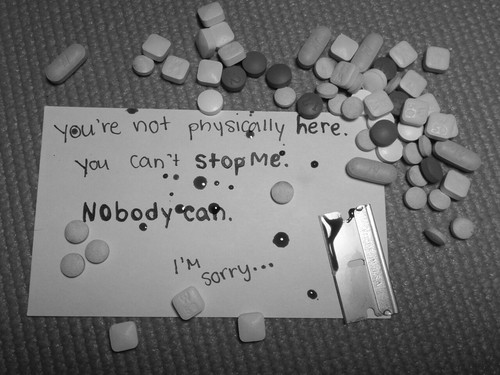 you're not physically here.
you can't stop Me.
Nobody can.
I'm
sorry...